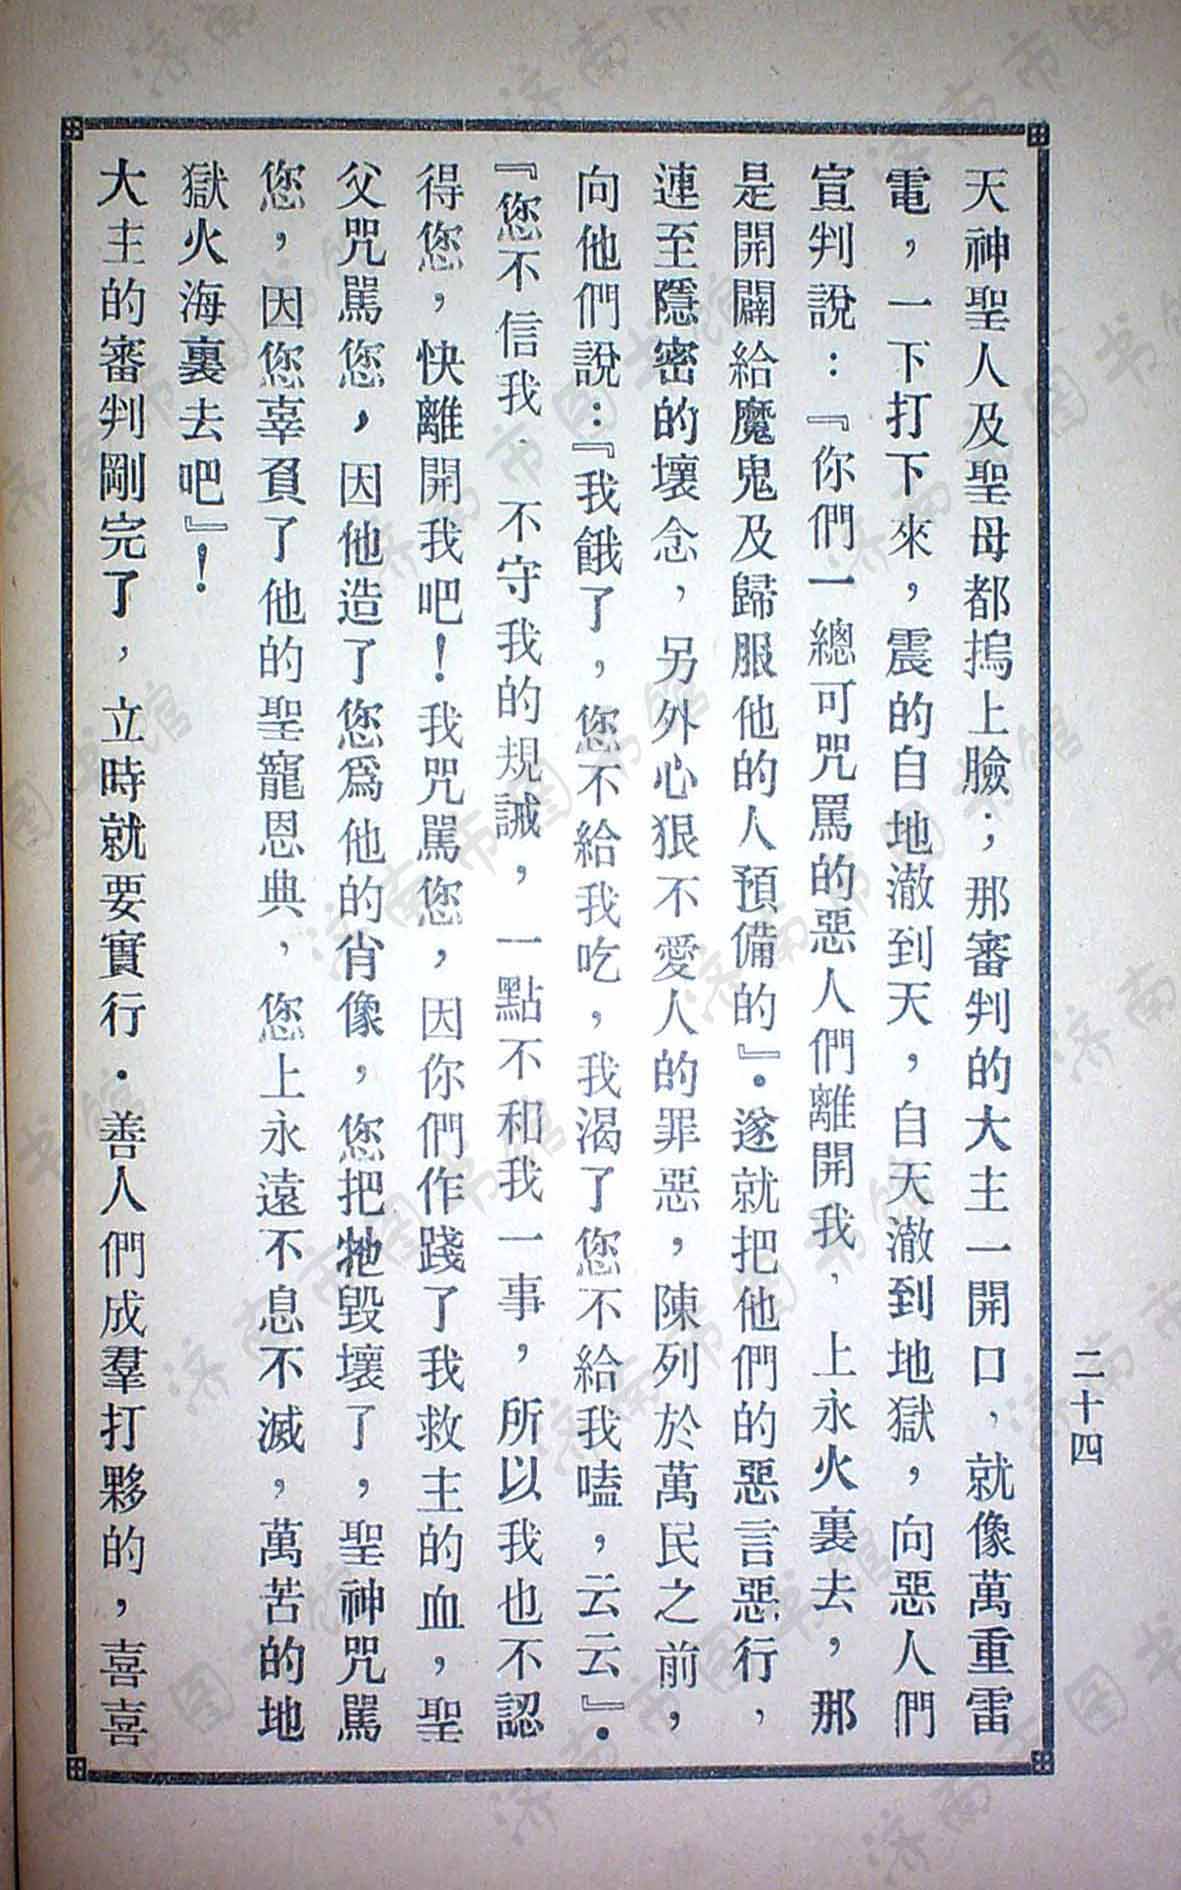 二十四
天神聖人及聖母都摀上臉；那審判的大主一開口，就像萬重雷
電，一下打下來，震的自地澈到天，自天澈到地獄，向惡人們
宣判說：『你們一總可咒罵的惡人們離開我，上永火裏去，那
是開闢給魔鬼及歸服他的人預備的』．遂就把他們的惡言惡行，
連至隱密的壞念，另外心狠不愛人的罪惡，陳列於萬民之前，
向他們說：『我餓了，您不給我吃，我渴了您不給我嗑，云云』．
『您不信我．不守我的規誡，一點不和我一事，所以我也不認
得您，快離開我吧！我咒駡您，因你們作踐了我救主的血，聖
父咒駡您，因他造了您爲他的肖像，您把牠毀壞了，聖神咒駡
您，因您辜負了他的聖寵恩典，您上永遠不息不滅，萬苦的地
獄火海裏去吧』！
大主的審判剛完了，立時就要實行．善人們成羣打夥的，喜喜
济南市图书馆